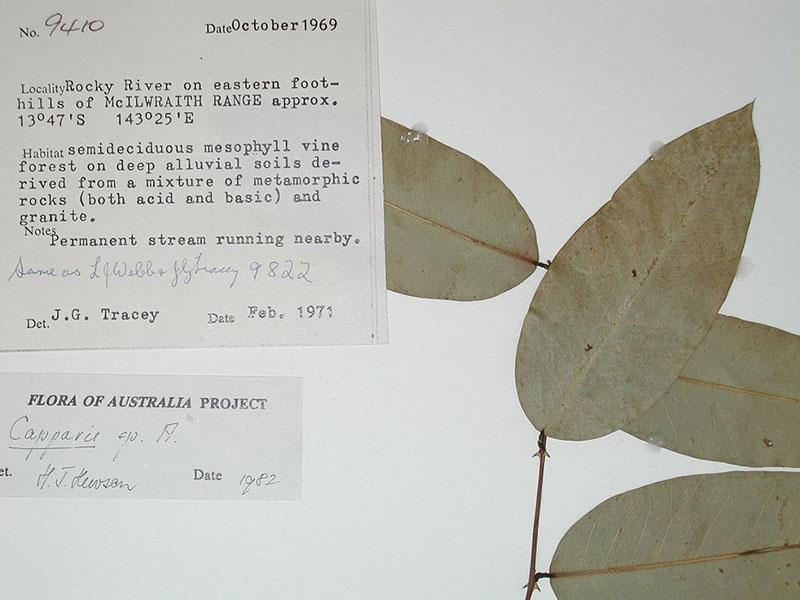 No. 9410 Date October 1969
Locality Rocky River on eastern foot-
hills of McILWRAITH RANGE approx.
13°47'S 143°25'E
Habitat semideciduous mesophyll vine
forest on deep alluvial soils de-
rived from a mixture of metamorphic
rocks (both acid and basic) and
granite.
Notes
Permanent stream running nearby.
Same as L J Webb & J G Tracey 9822
Det. J.G. Tracey Date Feb. 1971
FLORA OF AUSTRALIA PROJECT
Capparis sp. A.
et. H.J. Hewson Date 1982